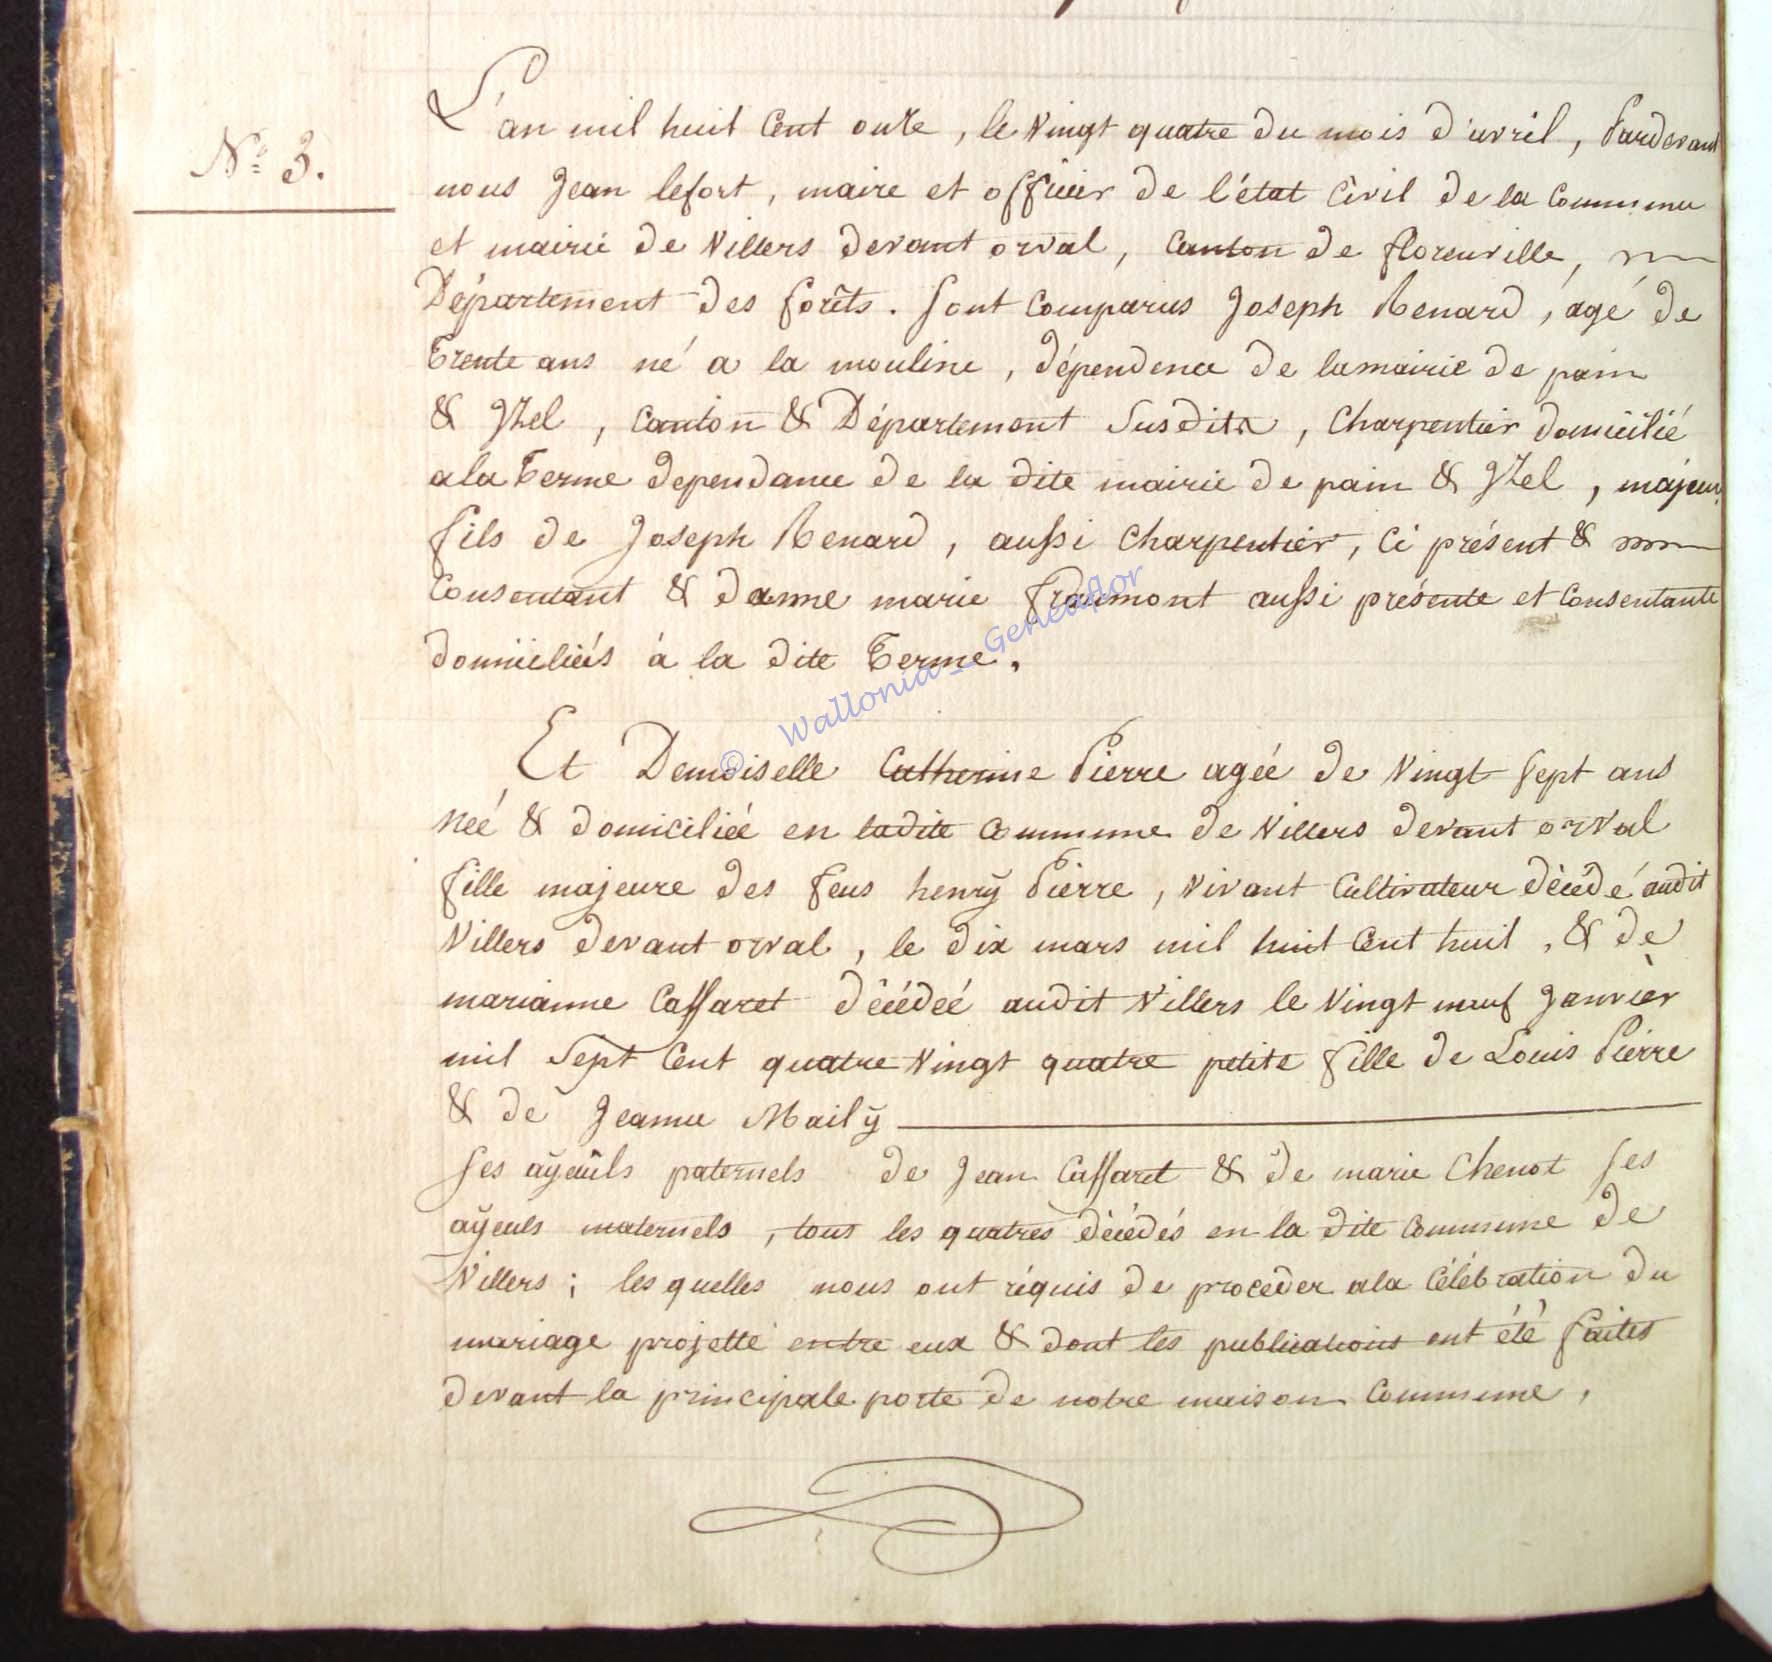 N° 3.
L'an mil huit Cent onze, le vingt quatre du mois d'avril, Pardevant
nous Jean lefort, maire et officier de l'état Civil de la Commune
et mairie de Villers devant orval, Canton de florenville,
Département des forêts. Sont Comparus Joseph Renard, agé de
Trente ans né a la mouline, dépendence de la mairie de pain
& Yzel, Canton & Département Susdits, Charpentier domicilié
a la Terme dependance de la dite mairie de pain & Yzel, majeur,
fils de Joseph Renard, aussi Charpentier, Ci présent &
Consentant & damme marie fraumont aussi présente et Consentante
domiciliés à la dite Terme.
Et Demoiselle Catherine Pierre agée de Vingt Sept ans
Née & domiciliée en ladite Commune de Villers devant orval
fille majeure des feus henrÿ Pierre, vivant Cultivateur décédé audit
Villers devant orval, le dix mars mil huit Cent huit, & de
marianne Caffaret décédeé audit Villers le Vingt neuf Janvier
mil Sept Cent quatre Vingt quatre petite fille de Louis Pierre
& de Jeanne Mailÿ
Ses aÿeuls paternels de Jean Caffaret & de marie Chenot Ses
aÿeuls maternels, tous les quatres décédés en la dite Commune de
Villers; les quelles nous ont réquis de proceder a la Célébration du
mariage projetté entre eux & dont les publications ont été faites
devant la principale porte de notre maison Commune,
© Wallonia_Geneaflor